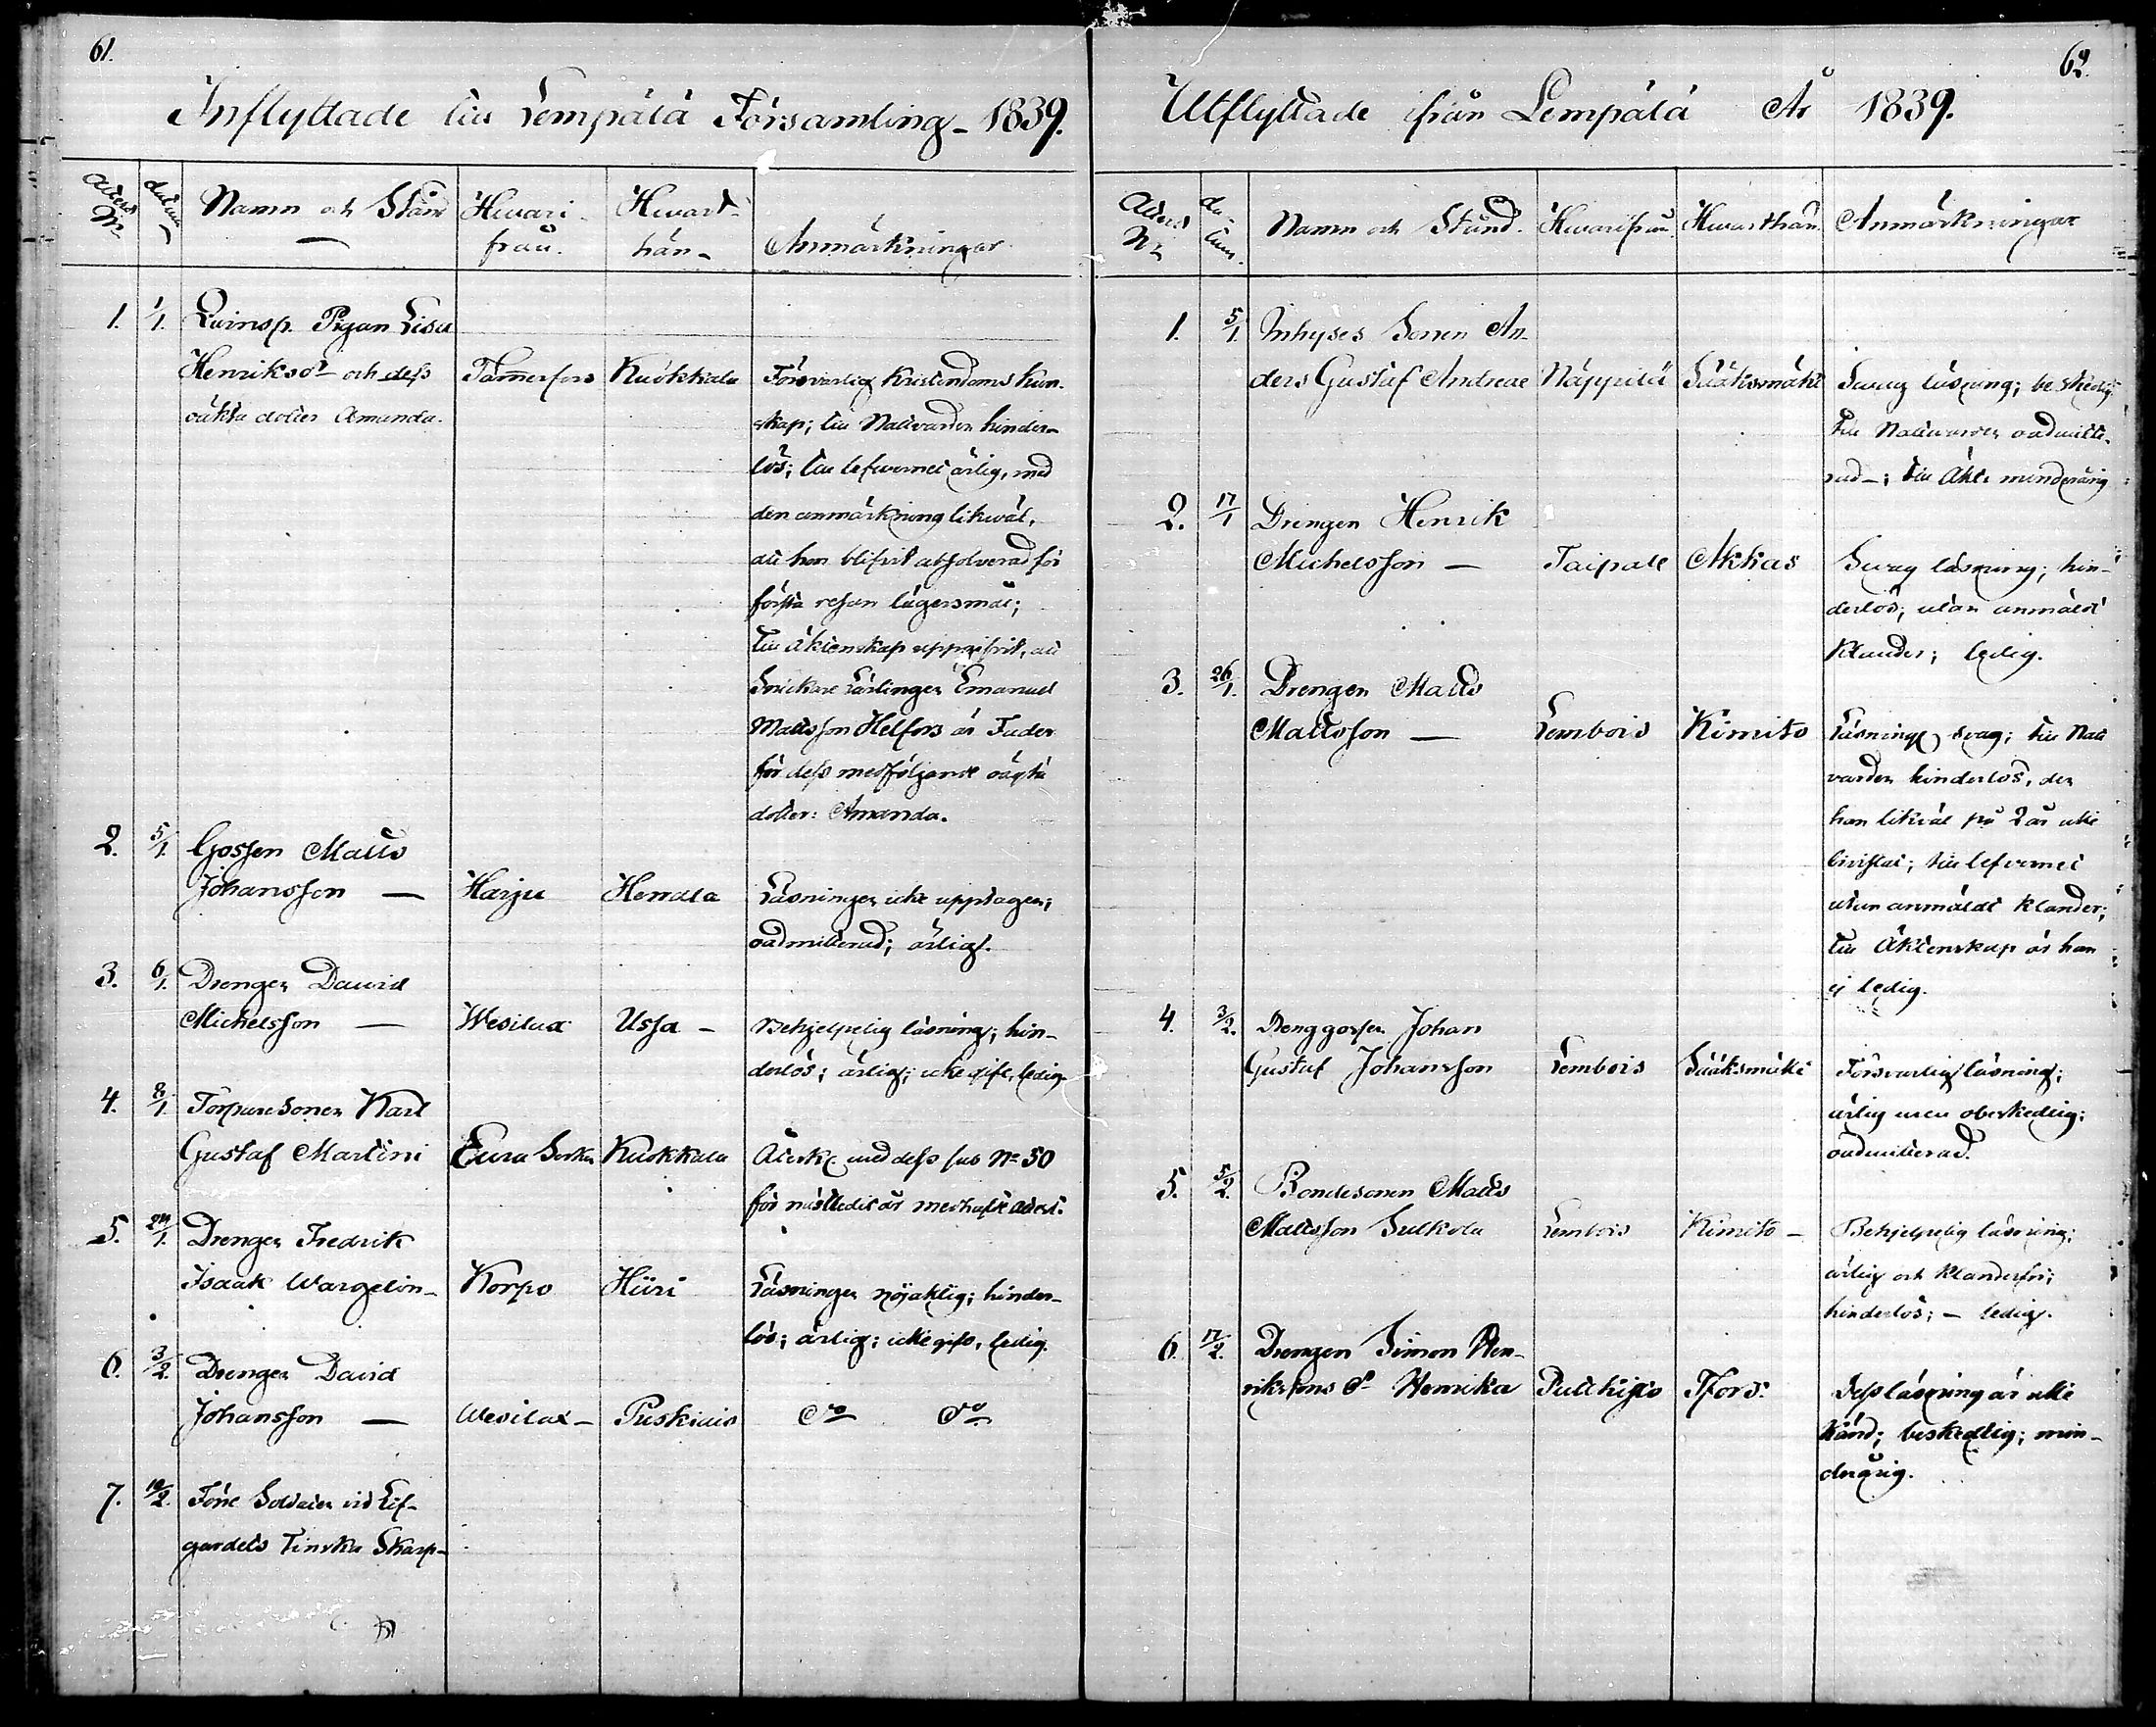 61.
Inflyttade till Lempälä Församling - 1839.
Attest N:r
datum
Namn och Stånd
Hvarifrån.
Hvarthän -
Anmärkningar
1. 1/1. Qvinsp. Pigan Lisa
Henriksd:r och dess Tammerfors Kuokkala Försvarlig Kristendoms kun-
oäkta dotter Amanda. skap; till Nattvarden hinder-
lös; till lefvernet ärlig, med
den anmärkning likväl,
att hon blifvit absolverad för
första resan lägersmål;
till Äktenskap uppgifvit, att
Snickare Lärlingen Emanuel
Mattsson Helfors är Fader
för dess medföljande oägta
dotter: Amanda.
2. 5/1. Gossen Matts
Johansson — Harju Herrala Läsningen icke upptagen;
oadmitterad; ärlig.
3. 6/1. Drengen David
Michelsson — Wesilax Ussa - Behjelpelig läsning; hin-
derlös; ärlig; icke gift, ledig
4. 8/1. Torparesonen Karl
Gustaf Martini Eura Kuokkala Återk. med dess sub N:o 50
för nästledit år medhafde attest.
5. 24/1. Drengen Fredrik
Isaak Wargelin - Korpo Hiiri Läsningen nöjaktig; hinder-
lös; ärlig; icke gift, ledig.
6. 3/2. Drengen David
Johansson — Wesilax - Puskiais d:o d:o
7. 10/2. Förre Soldaten vid Lif-
gardets Finska Skarp-
62.
Utflyttade ifrån Lempälä År 1839.
Attest N:r
datum.
Namn och Stånd.
Hvarifrån.
Hvarthän.
Anmärkningar
1. 5/1. Inhyses Sonen An-
ders Gustaf Andreae Näppilä Sääksmäki Svag läsning; beskedlig:
till Nattvarden oadmitte-
rad -; till Äkt. minderårig
2. 17/1 Drengen Henrik
Michelsson — Taipale Akkas Svag läsning; hin-
derlös; utan anmäldt
klander; ledig.
3. 26/1. Drengen Matts
Mattsson — Lembois Kimito Läsning svag; till Natt
varden hinderlös, den
han likväl på 2 år icke
bevistat; till lefvernet
utan anmäldt klander;
till Äktenskap är han
ej ledig.
4. 3/2. Drenggossen Johan
Gustaf Johansson Lembois Sääksmäki Försvarlig läsning;
ärlig men obeskedlig;
oadmitterad.
5. 5/2. Bondesonen Matts
Mattsson Sulkola Lembois Kimito - Behjelpelig läsning;
ärlig och klanderfri;
hinderlös; - ledig.
6. 17/2. Drengen Simon Hen-
rikssons d:r Henrika Tfors. Dess läsning är icke
känd; beskedlig; min-
derårig.